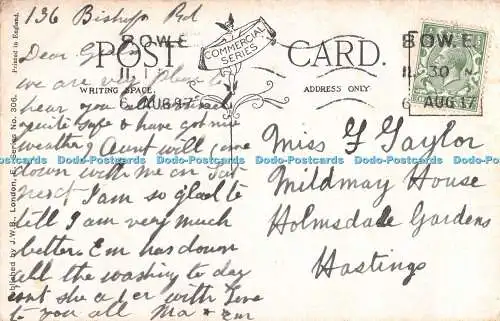 136 Bishop Rd
BOW.E.
POST CARD.
COMMERCIAL SERIES
11.
WRITING SPACE.
ADDRESS ONLY.
6 AUG 17
BOW.E.
11.30
6 AUG 17
Printed in England.
Published by J.W.B., London, E. Series No. 306.
Dear
we are very to
hear you
quite safe & have got nice
weather Aunt will come
down with me on Sat
next I am so glad to
tell I am very much
better. Em has down
all the washing to day
ant she a with love
to you all Ma & Em
Miss G Taylor
Mildmay House
Holmsdale Gardens
Hastings
Dodo-Postcards Dodo-Postcards Dodo-Postcards Dodo-Postcards Dodo-Postcards Dodo-Postcards